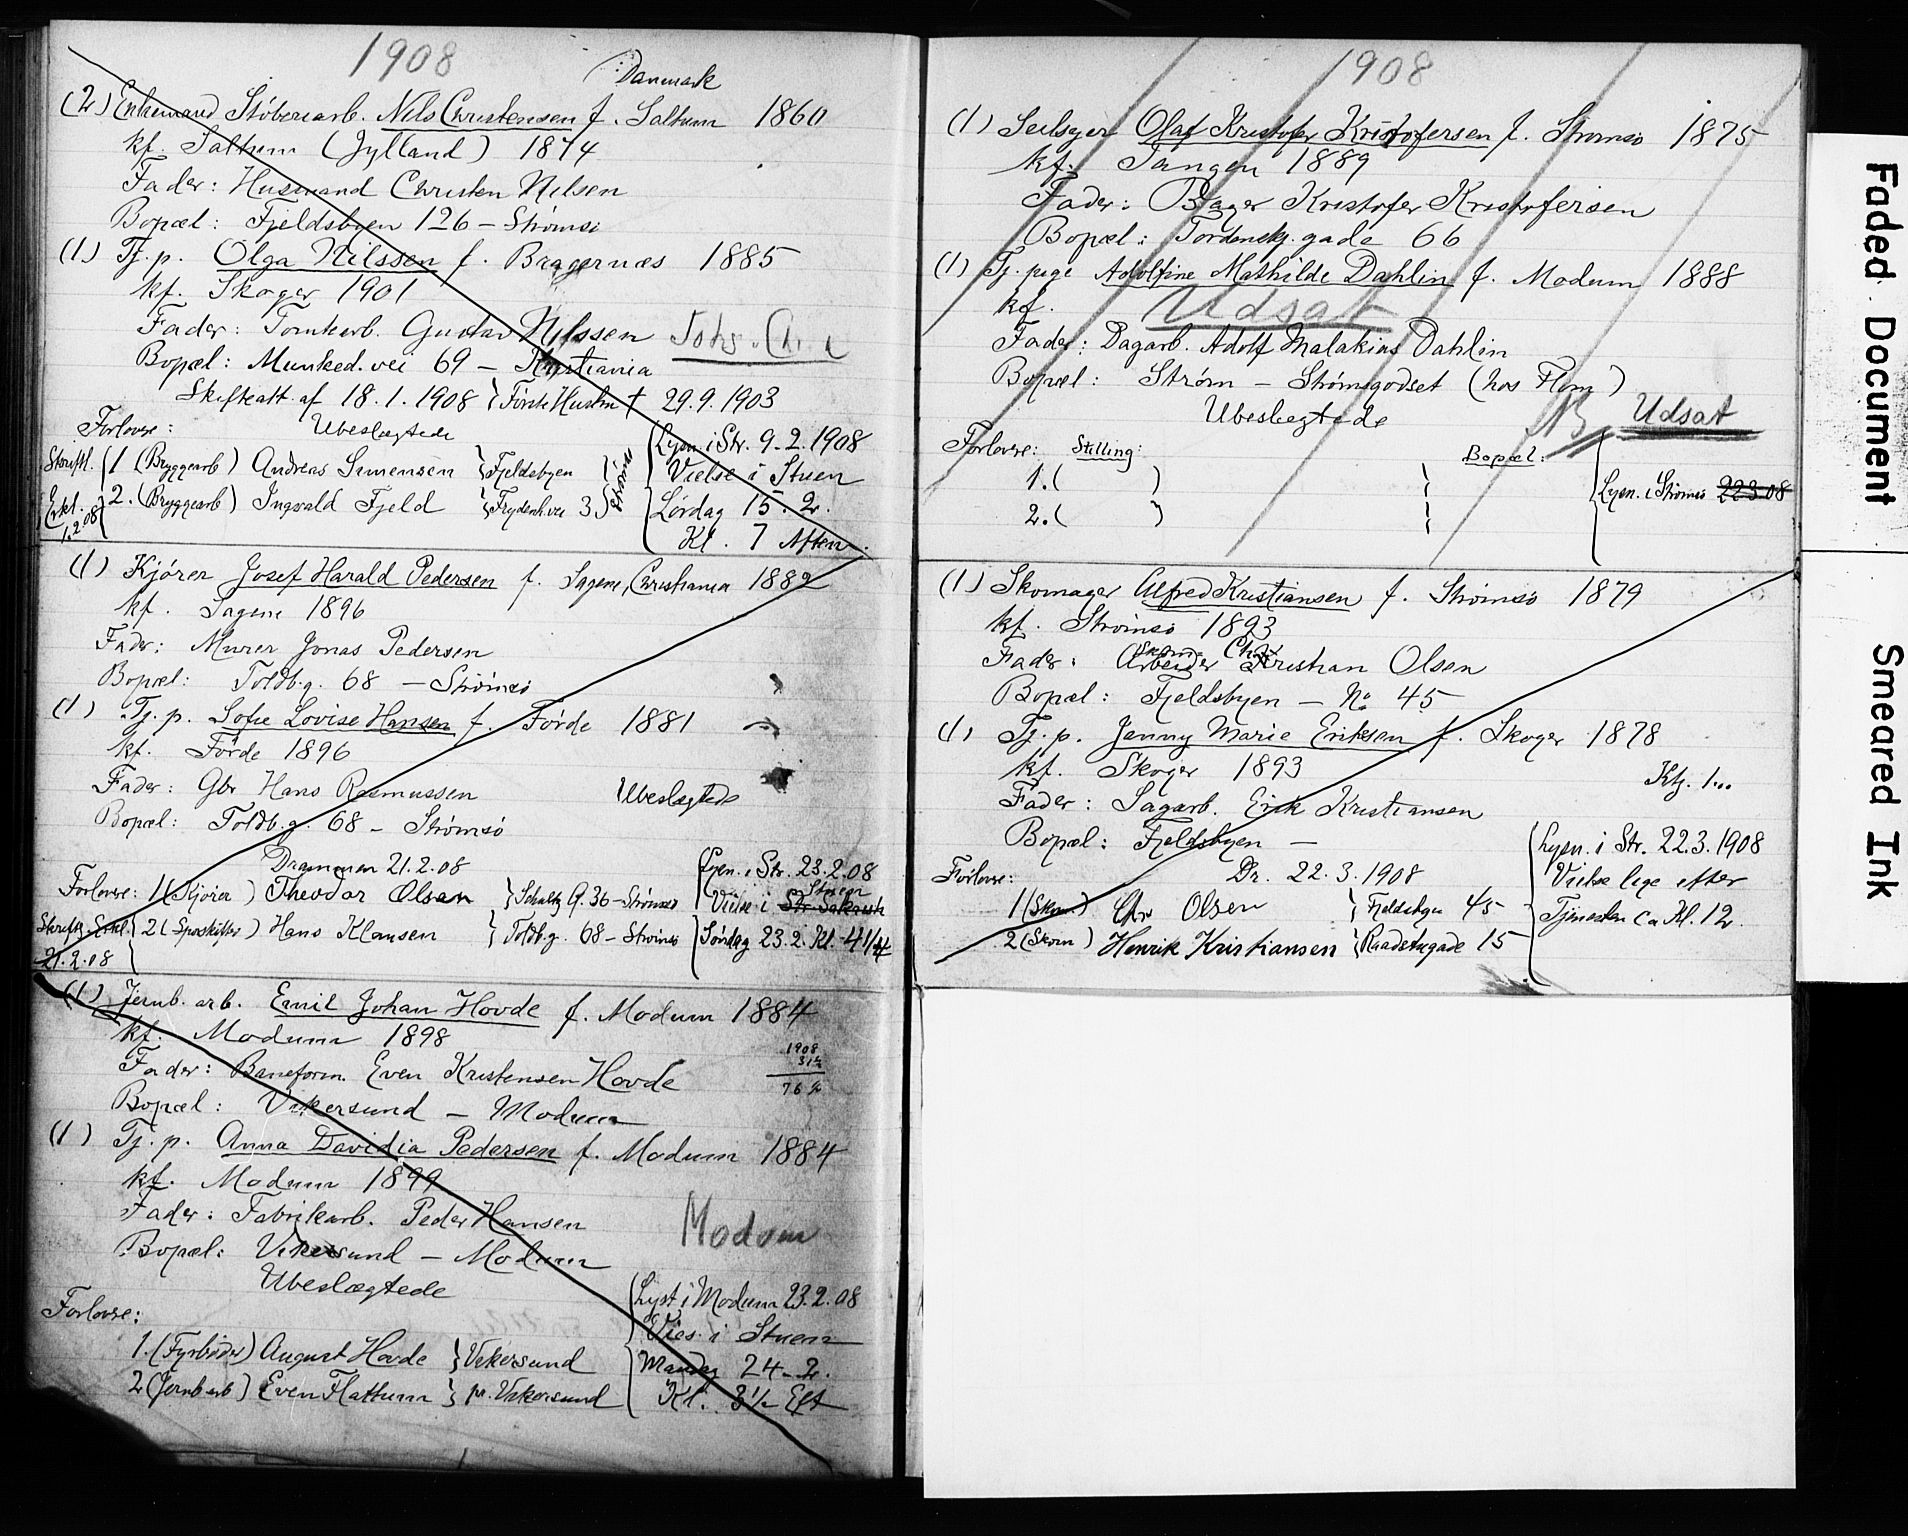 1908
Danmark
(2) Enkemand Støberiarb. Nils Christensen f. Saltum 1860
kf. Saltum (Jylland) 1874
Fader: Husmand Christen Nilsen
Bopæl: Fjeldsbyen 126 – Strømsø
(1) Tj. p. Olga Nilssen f. Bragernæs 1885
kf. Skoger 1901
Fader: Tomtearb. Gustav Nilssen
Bopæl: Munked. vei 69 – Kristiania
Skifteatt. af 18.1.1908 } Første Hustru † 29.9.1903
Ubeslægtede
Forlovere:
Skriftl. Erkl. 1.2.08
1 (Bryggearb) Andreas Simensen } Fjeldsbyen
2. (Bryggearb) Ingvald Fjeld } Frydenh. vei 3 } Strømsø
Lysn. i Str. 9.2.1908
Vielse i Stuen
Lørdag 15.2.
Kl. 7 Aften.
(1) Kjører Josef Harald Pedersen f. Sagene, Christiania 1882
kf. Sagene 1896
Fader: Murer Jonas Pedersen
Bopæl: Toldb.g. 68 – Strømsø
(1) Tj. p. Sofie Lovise Hansen f. Førde 1881
kf. Førde 1896
Fader: Gbr Hans Rasmussen
Ubeslægtede
Bopæl: Toldb.g. 68 – Strømsø
Drammen 21.2.08
Forlovere: 1 (Kjører) Theodor Olsen } Schultz G. 36 – Strømsø
Skriftl. Erkl. 21.2.08
2 (Sporskifter) Hans Klausen } Toldb.g. 68 – Strømsø
Lysn. i Str. 23.2.08
Stuen
Vielse i Str
Søndag 23.2. Kl. 4 1/4
(1) Jernb. arb. Emil Johan Hovde f. Modum 1884
kf. Modum 1898
Fader: Baneform. Even Kristensen Hovde
1908
Bopæl: Vikersund – Modum
(1) Tj. p. Anna Davidia Pedersen f. Modum 1884
kf. Modum 1899
Fader: Fabrikarb. Peder Hansen
Modum
Bopæl: Vikersund – Modum
Ubeslægtede
Forlovere:
1. (Fyrbøder) August Hovde } Vikersund
2 (Jernb arb) Even Flattum } pr. Vikersund
Lyst i Modum 23.2.08
Vies i Stuen
Mandag 24.2.
Kl. 3 1/2 Eft
1908
(1) Seilsyer Olaf Kristofer Kristofersen f. Strømsø 1875
kf. Tangen 1889
Fader: Bager Kristofer Kristofersen
Bopæl: Tordenskj. gade 66
(1) Tj. pige Adolfine Mathilde Dahlin f. Modum 1888
kf. Udsat
Fader: Dagarb. Adolf Malakias Dahlin
Bopæl: Strøm – Strømsgodset (hos Flom)
Ubeslægtede
NB Udsat
Forlovere: Stilling: Bopæl:
1. ( ) }
2. ( ) }
Lysn. i Strømsø 22.3.08
(1) Skomager Alfred Kristiansen f. Strømsø 1879
kf. Strømsø 1893
Skom. Chr
Fader: Arbeider Kristian Olsen
Bopæl: Fjeldsbyen – No 45
(1) Tj. p. Jenny Marie Eriksen f. Skoger 1878
kf. Skoger 1893
Fader: Sagarb. Erik Kristiansen
Bopæl: Fjeldsbyen –
Dr. 22.3.1908
Forlovere:
1 (Skom.) Chr Olsen } Fjeldsbyen 45
2 (Skom) Henrik Kristiansen } Raadstugade 15
Lysn. i Str. 22.3.1908
Vielse lige efter
Tjenesten ca Kl. 12
Faded Document
Smeared Ink